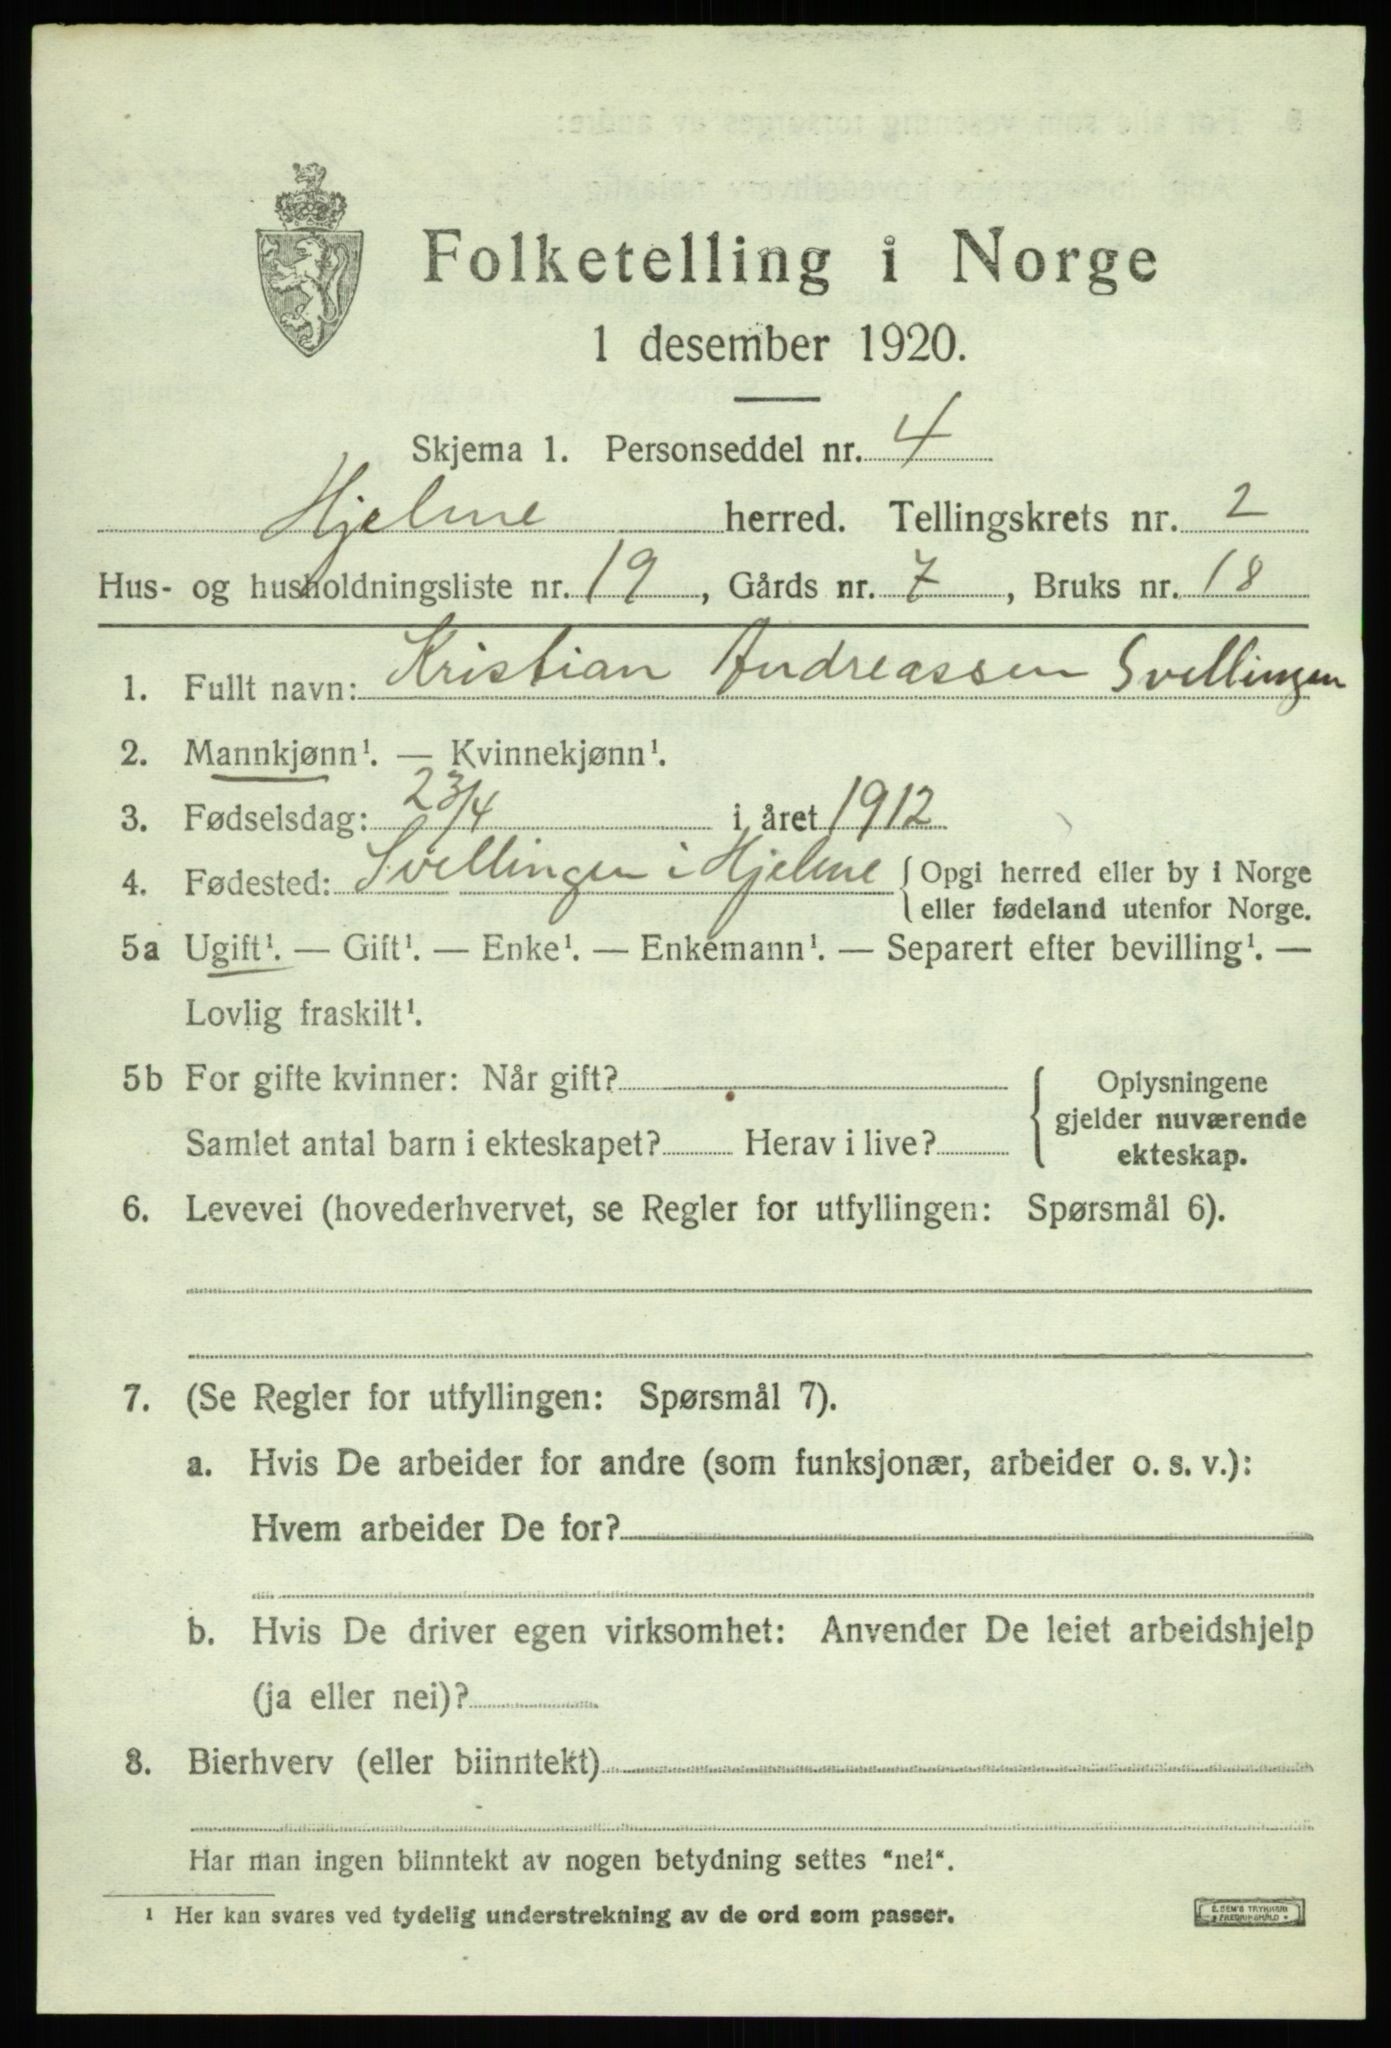 Folketelling i Norge
1 desember 1920.
Skjema 1. Personseddel nr. 4
Hjelme herred. Tellingskrets nr. 2
Hus- og husholdningsliste nr. 19, Gårds nr. 7, Bruks nr. 18
1. Fullt navn: Kristian Andreassen Svellingen
2. Mannkjønn¹. — Kvinnekjønn¹.
3. Fødselsdag: 23/4 i året 1912
4. Fødested: Svellingen i Hjelme { Opgi herred eller by i Norge
eller fødeland utenfor Norge.
5a Ugift¹. — Gift¹. — Enke¹. — Enkemann¹. — Separert efter bevilling¹. —
Lovlig fraskilt¹.
5b For gifte kvinner: Når gift? { Oplysningene
gjelder nuværende
Samlet antal barn i ekteskapet? Herav i live?
ekteskap.
6. Levevei (hovederhvervet, se Regler for utfyllingen: Spørsmål 6).
7. (Se Regler for utfyllingen: Spørsmål 7).
a. Hvis De arbeider for andre (som funksjonær, arbeider o. s. v.):
Hvem arbeider De for?
b. Hvis De driver egen virksomhet: Anvender De leiet arbeidshjelp
(ja eller nei)?
8. Bierhverv (eller biinntekt)
Har man ingen biinntekt av nogen betydning settes "nei".
¹ Her kan svares ved tydelig understrekning av de ord som passer.
E. SEM'S TRYKKERI
FREDRIKSHALD